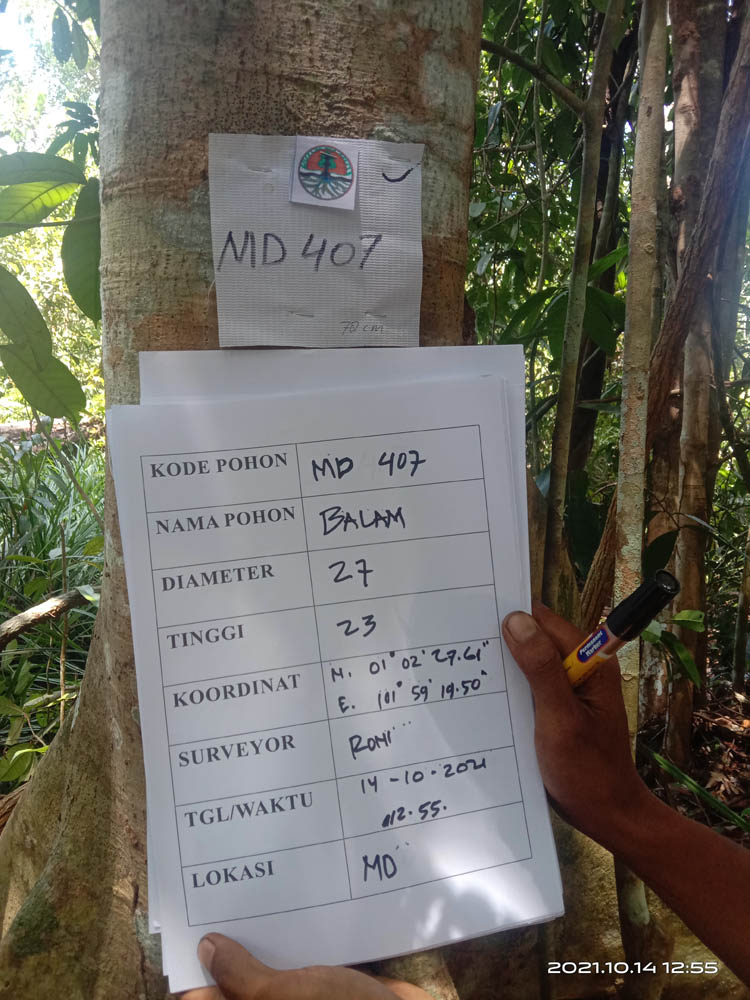 MD 407
70 cm
KODE POHON MD 407
NAMA POHON BALAM
DIAMETER 27
TINGGI 23
KOORDINAT N. 01° 02' 27.61"
E. 101° 59' 19.50"
SURVEYOR RONI
TGL/WAKTU 14-10-2021
12.55.
LOKASI MD
Permanent Marker
2021.10.14 12:55